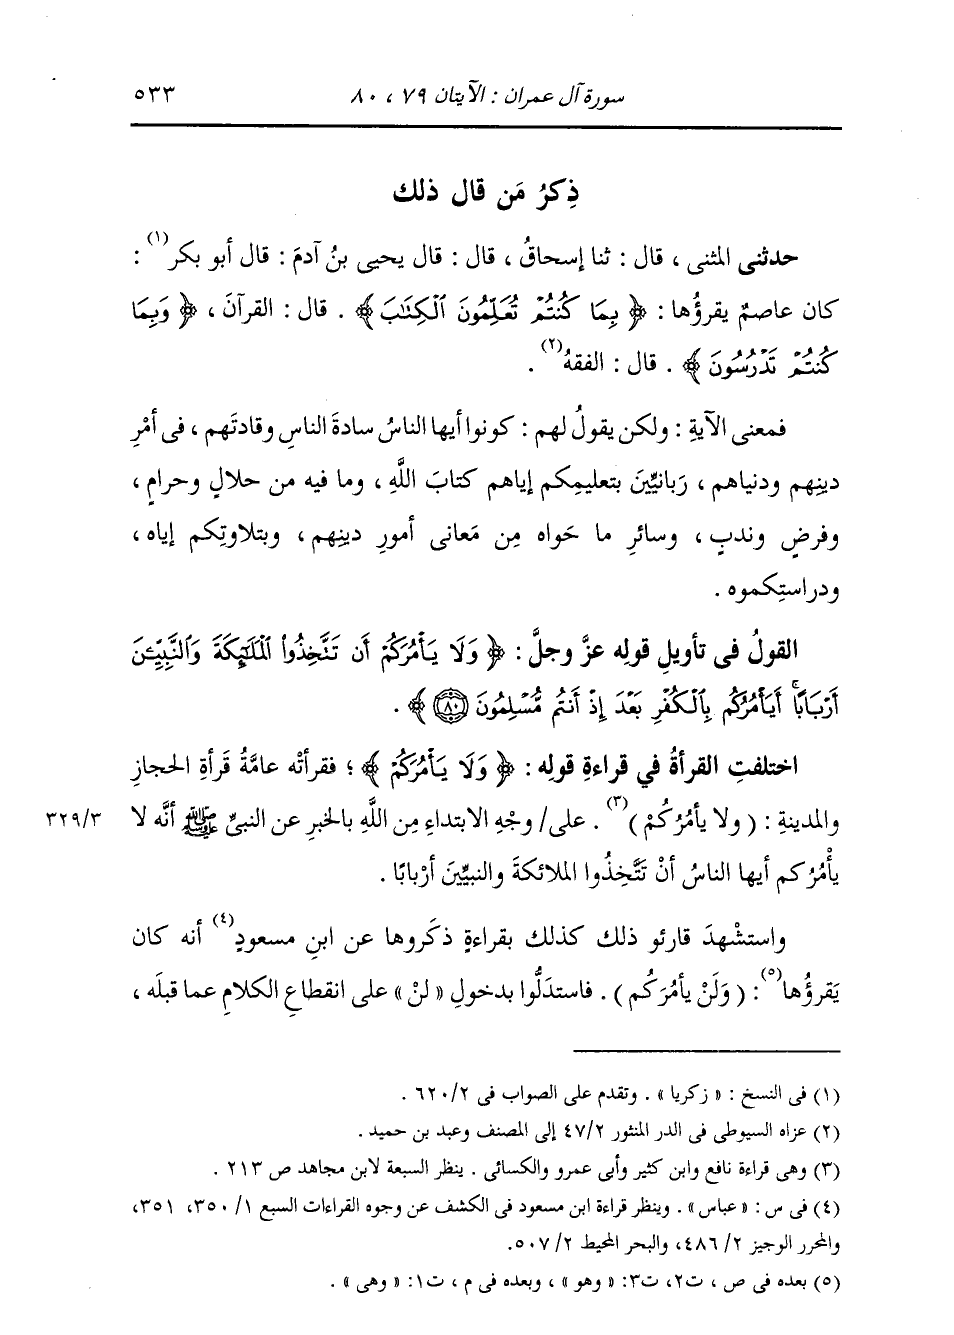 سورة آل عمران : الآيتان ٧٩ ، ٨٠ ٥٣٣
ذِكرُ مَن قال ذلك
حدثنى المثنى ، قال : ثنا إسحاقُ ، قال : قال يحيى بنُ آدمَ : قال أبو بكر(١) :
كان عاصمٌ يقرؤُها : ﴿ بِمَا كُنتُمْ تُعَلِّمُونَ ٱلْكِتَٰبَ ﴾ . قال : القرآنَ ، ﴿ وَبِمَا
كُنتُمْ تَدْرُسُونَ ﴾ . قال : الفقهُ(٢) .
فمعنى الآيةِ : ولكن يقولُ لهم : كونوا أيها الناسُ سادةَ الناسِ وقادتَهم ، فى أمْرِ
دينِهم ودنياهم ، رَبانيِّينَ بتعليمِكم إياهم كتابَ اللَّهِ ، وما فيه من حلالٍ وحرامٍ ،
وفرضٍ وندبٍ ، وسائرِ ما حَواه مِن مَعانى أمورِ دينِهم ، وبتلاوتِكم إياه ،
ودراستِكموه .
القولُ فى تأويلِ قولِه عزَّ وجلَّ : ﴿ وَلَا يَأْمُرَكُمْ أَن تَتَّخِذُوا۟ ٱلْمَلَٰٓئِكَةَ وَٱلنَّبِيِّـۧنَ
أَرْبَابًا ۚ أَيَأْمُرُكُم بِٱلْكُفْرِ بَعْدَ إِذْ أَنتُم مُّسْلِمُونَ ٨٠ ﴾ .
اختلفتِ القرأةُ في قراءةِ قولِه : ﴿ وَلَا يَأْمُرَكُمْ ﴾ ؛ فقرأتْه عامَّةُ قَرأةِ الحجازِ
والمدينةِ : ( ولا يأمُرُكُمْ )(٣) . على/ وجْهِ الابتداءِ مِن اللَّهِ بالخبرِ عن النبىِّ ﷺ أنَّه لا ٣٢٩/٣
يأْمُرُكم أيها الناسُ أنْ تَتَّخِذُوا الملائكةَ والنبيِّينَ أرْبابًا .
واستشْهدَ قارئو ذلك كذلك بقراءةٍ ذكَروها عن ابنِ مسعودٍ(٤) أنه كان
يَقرؤُها(٥) : ( وَلَنْ يأمُرَكُم ) . فاستدَلُّوا بدخولِ « لنْ » على انقطاعِ الكلامِ عما قبلَه ،
(١) فى النسخ : « زكريا » . وتقدم على الصواب فى ٦٢٠/٢ .
(٢) عزاه السيوطى فى الدر المنثور ٤٧/٢ إلى المصنف وعبد بن حميد .
(٣) وهى قراءة نافع وابن كثير وأبى عمرو والكسائى . ينظر السبعة لابن مجاهد ص ٢١٣ .
(٤) فى س : « عباس » . وينظر قراءة ابن مسعود فى الكشف عن وجوه القراءات السبع ١/ ٣٥٠، ٣٥١،
والمحرر الوجيز ٢/ ٤٨٦، والبحر المحيط ٢/ ٥٠٧.
(٥) بعده فى ص ، ت٢، ت٣: « وهو » ، وبعده فى م ، ت١: « وهى » .